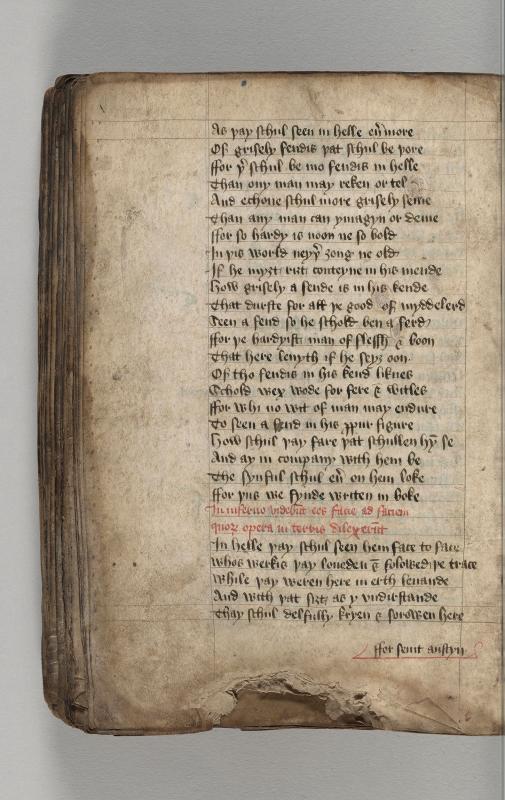 As þay schul seen in helle eu̅more
Of grisely fendis þat schul be þore
ffor þʳ schul be mo fendis in helle
Than ony man may reken or tel
And echone schul more grisely seme
Than any man can ymagyn or deme
ffor so hardy is noon ne so bold
In þis world neyþʳ ȝong ne old
If he myȝt riȝt conteyne in his mende
How grisely a fende is in his kende
That durste for all þe good of myddelerd
Seen a fend so he schold ben a ferd
ffor þe hardyist man of flessh & boon
That here lenyth if he seyȝ oon
Of tho fendis in his kend liknes
Schold wex wode for fere & witles
ffor whi no wit of man may endure
To seen a fend in his ꝓpur figure
How schul þay fare þat schullen hym̅ se
And ay in company with hem be
The synful schul eu̅ on hem loke
ffor þus we fynde writen in boke
In inferno videbūt eos facie ad faciem
quoꝝ opera in terris dilexerūt
In helle þay schul seen hem face to face
Whos werkis þay loueden & folowed þe trace
While þay weren here in erth leuande
And with þat siȝt as y vndirstande
Thay schul delfully kryen & sorowen here
ffor seint austyn